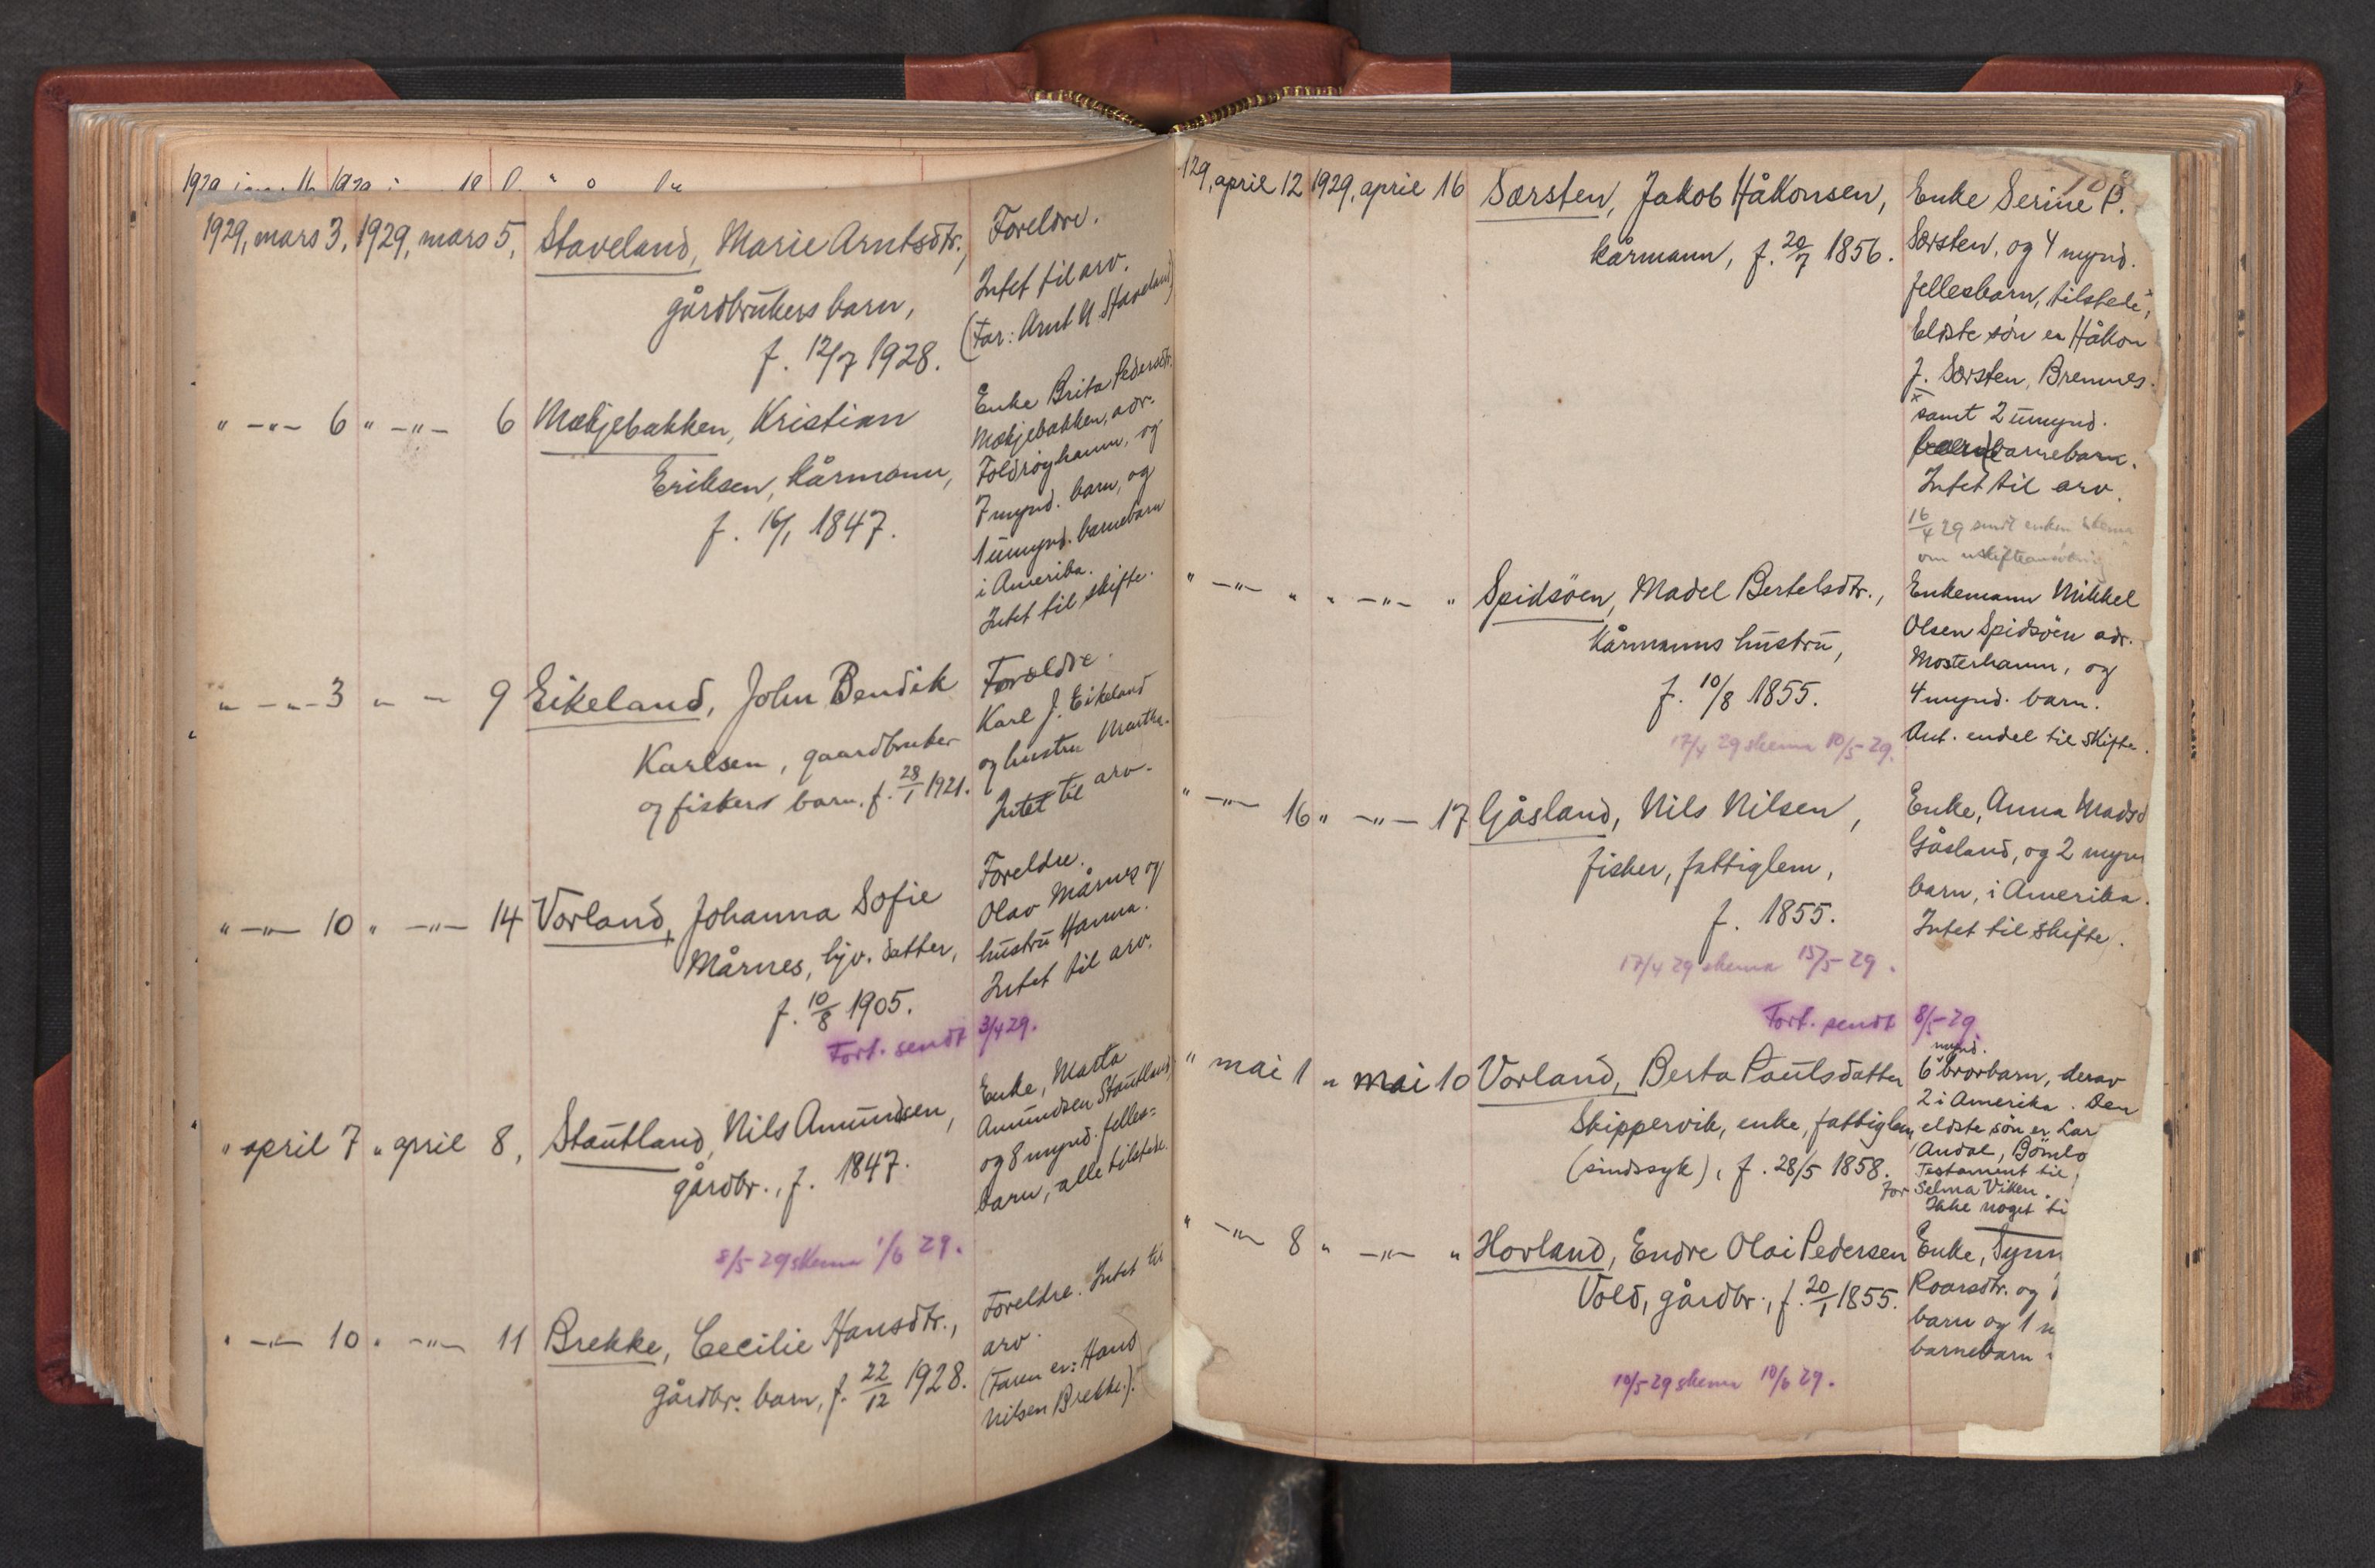 1929, mars 3, 1929, mars 5, Staveland, Marie Arntsdtr., Foreldre.
gårdbrukers barn, Intet til arv.
f. 12/7 1928. (Far: Arnt N. Staveland)
" -"- 6 " -"- 6 Mækjebakken, Kristian Enke Brita Pedersdtr.
Eriksen, kårmann, Mækjebakken, adr.
f. 16/1 1847. Foldrøyhamn, og
7 mynd. barn, og
1 umynd. barnebarn
i Amerika.
Intet til skifte.
" -"- 3 " - 9 Eikeland, John Bendik Forældre.
Karlsen, gaardbruker Karl J. Eikeland
og fiskers barn. f. 28/1 1921. og hustru Martha.
Intet til arv.
" -"- 10 " -"- 14 Vorland, Johanna Sofie Foreldre.
Mårnes, hjv. datter, Olav Mårnes og
f. 10/8 1905. hustru Hanna.
Intet til arv.
Fort. sendt 3/4 29.
" april 7 " april 8, Stautland, Nils Amundsen, Enke, Marta
gårdbr., f. 1847. Amundsen Stautland,
og 8 mynd. felles=
barn, alle tilstede.
8/5-29 skema 1/6 29.
" -"- 10 " -"- 11 Brekke, Cecilie Hansdtr., Foreldre. Intet til
gårdbr. barn, f. 22/12 1928. arv.
(Faren er: Hans
Nilsen Brekke.).
129, april 12 1929, april 16 Sørsten, Jakob Håkonsen, Enke Serine P.
kårmann, f. 20/7 1856. Sørsten, og 4 mynd.
fellesbarn, tilstede,x
Eldste søn er Håkon
J. Sørsten, Bremnes.
x samt 2 umynd.
barnebarn.
Intet til arv.
16/4 29 sendt enken skema
om
" -"- " " -"- " Spidsøen, Madel Bertelsdtr., Enkemann Mikkel
kårmanns hustru, Olsen Spidsøen adr.
f. 10/8 1855. Mosterhamn, og
4 mynd. barn.
17/4 29 skema 10/5-29. Ant. endel til skifte.
" -"- 16 " -"- 17 Gåsland, Nils Nilsen, Enke, Anna Madsd
fisker, fattiglem, Gåsland, og 2 myn
f. 1855. barn, i Amerika.
Intet til skifte.
17/4 29 skema 15/5-29.
Fort. sendt 8/5-29.
" mai 1 " mai 10 Vorland, Berta Paulsdatter 6 mynd. brorbarn, derav
Skippervik, enke, fattiglem 2 i Amerika. Den
(sindssyk), f. 28/5 1858. eldste søn er Lar
Andal, Bømlo
Testament til
for Selma Viken.
Ikke noget ti
" -"- 8 " -"- " Hovland, Endre Olai Pedersen Enke, Synn
Vold, gårdbr., f. 20/1 1855. Roarsdtr. og
barn og 1
barnebarn
10/5-29 skema 10/6 29.